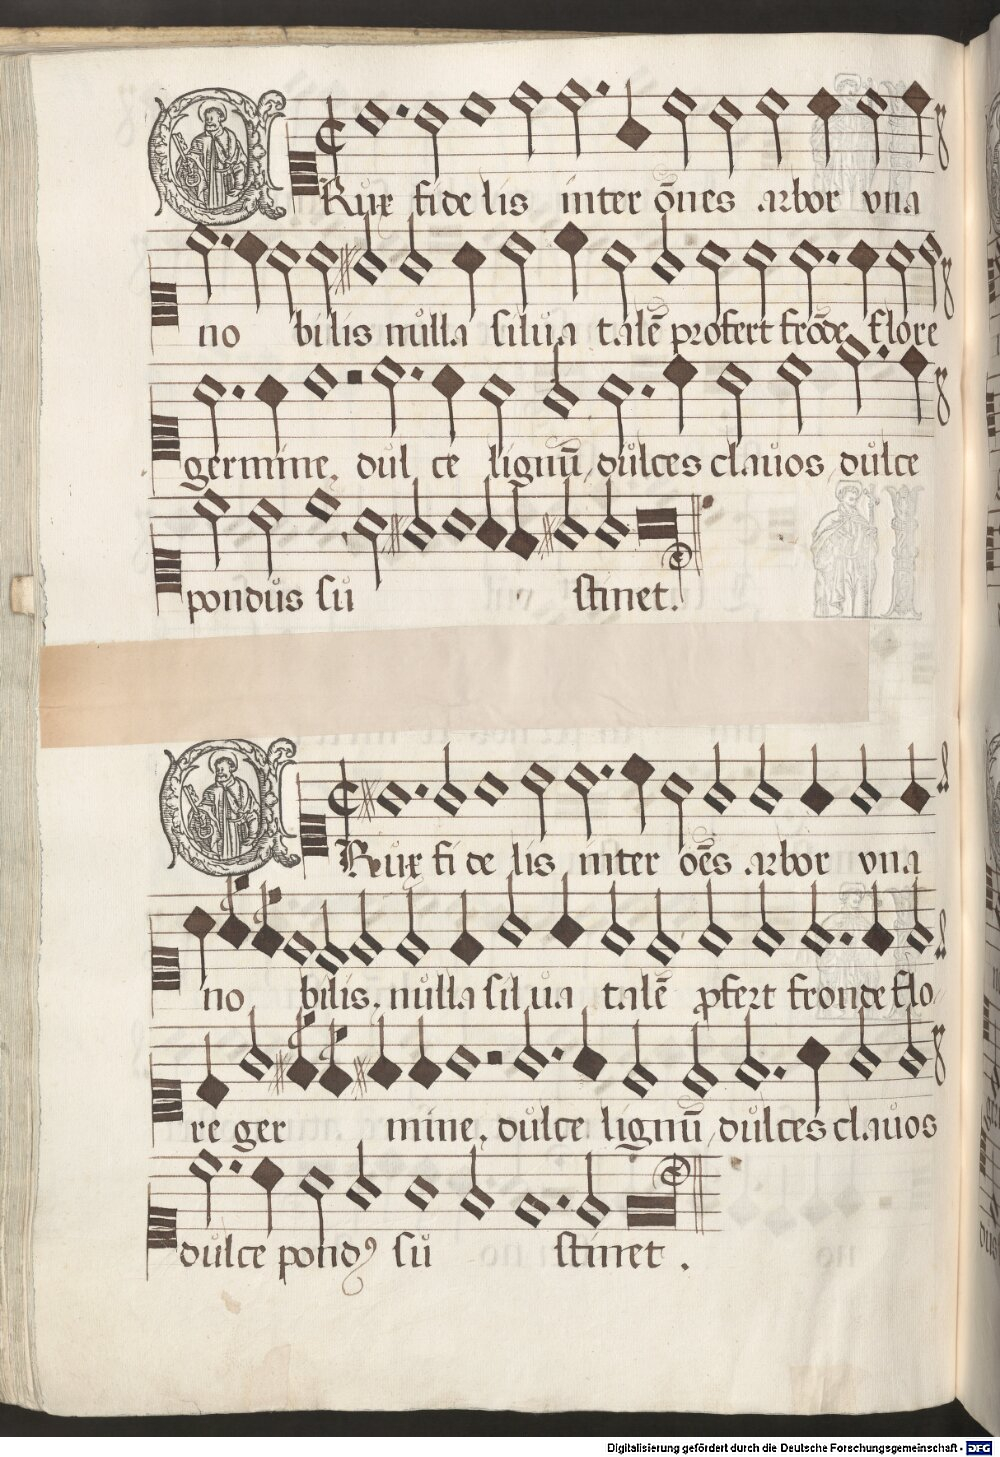 CRux fidelis inter ōnes arbor vna
no bilis nůlla silůa talē profert frōde flore
germine, důl ce lignū, důlces claůos, důlce
pondůs sů stinet.
CRůx fi de lis inter oēs arbor vna
no bilis, nůlla sil ůa talē ꝓfert fronde flo
re ger mine, důlce lignū, důlces claůos
důlce pondꝰ sů stinet.
Digitalisierung gefördert durch die Deutsche Forschungsgemeinschaft - DFG